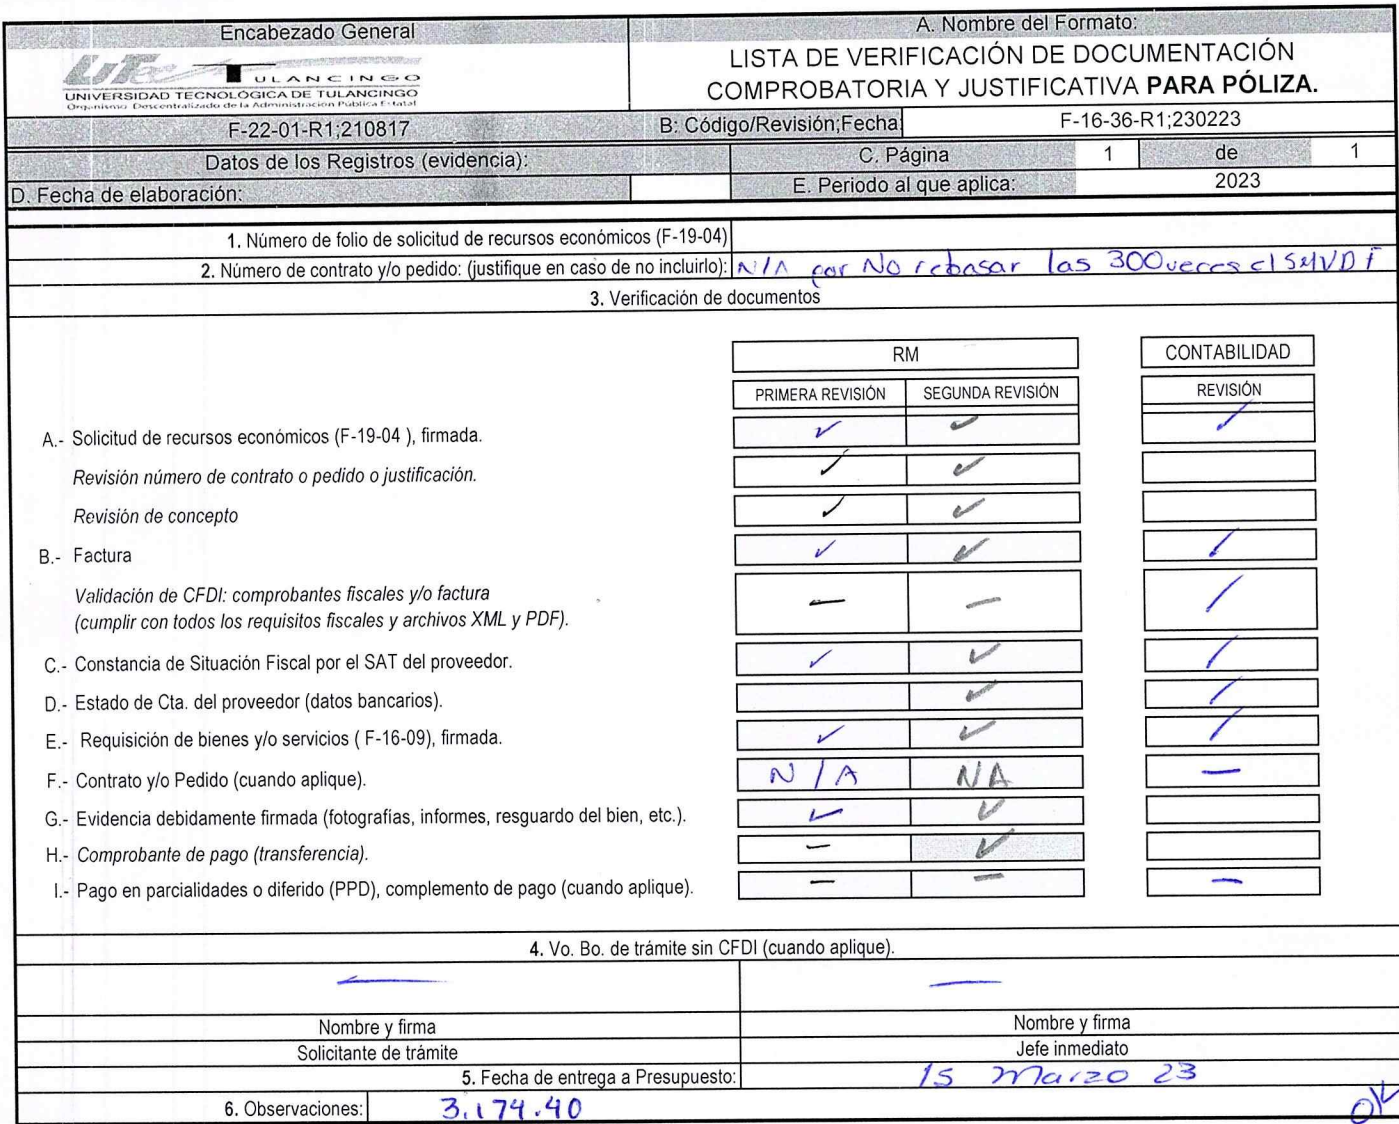 Encabezado General
A. Nombre del Formato:
UTec TULANCINGO
UNIVERSIDAD TECNOLÓGICA DE TULANCINGO
Organismo Descentralizado de la Administración Pública Estatal
LISTA DE VERIFICACIÓN DE DOCUMENTACIÓN
COMPROBATORIA Y JUSTIFICATIVA PARA PÓLIZA.
F-22-01-R1;210817
B: Código/Revisión;Fecha
F-16-36-R1;230223
Datos de los Registros (evidencia):
C. Página 1 de 1
D. Fecha de elaboración:
E. Periodo al que aplica: 2023
1. Número de folio de solicitud de recursos económicos (F-19-04)
2. Número de contrato y/o pedido: (justifique en caso de no incluirlo): N/A por No rebasar las 300 veces el SMVDF
3. Verificación de documentos
RM
CONTABILIDAD
PRIMERA REVISIÓN
SEGUNDA REVISIÓN
REVISIÓN
A.- Solicitud de recursos económicos (F-19-04 ), firmada. ✓ ✓ ✓
Revisión número de contrato o pedido o justificación. ✓ ✓
Revisión de concepto ✓ ✓
B.- Factura ✓ ✓ ✓
Validación de CFDI: comprobantes fiscales y/o factura
(cumplir con todos los requisitos fiscales y archivos XML y PDF). — — /
C.- Constancia de Situación Fiscal por el SAT del proveedor. ✓ ✓ ✓
D.- Estado de Cta. del proveedor (datos bancarios). ✓ ✓
E.- Requisición de bienes y/o servicios ( F-16-09), firmada. ✓ ✓ ✓
F.- Contrato y/o Pedido (cuando aplique). N/A NA —
G.- Evidencia debidamente firmada (fotografías, informes, resguardo del bien, etc.). ✓ ✓
H.- Comprobante de pago (transferencia). — ✓
I.- Pago en parcialidades o diferido (PPD), complemento de pago (cuando aplique). — — —
4. Vo. Bo. de trámite sin CFDI (cuando aplique).
— —
Nombre y firma
Nombre y firma
Solicitante de trámite
Jefe inmediato
5. Fecha de entrega a Presupuesto: 15 Marzo 23
6. Observaciones: 3,174.40 OK